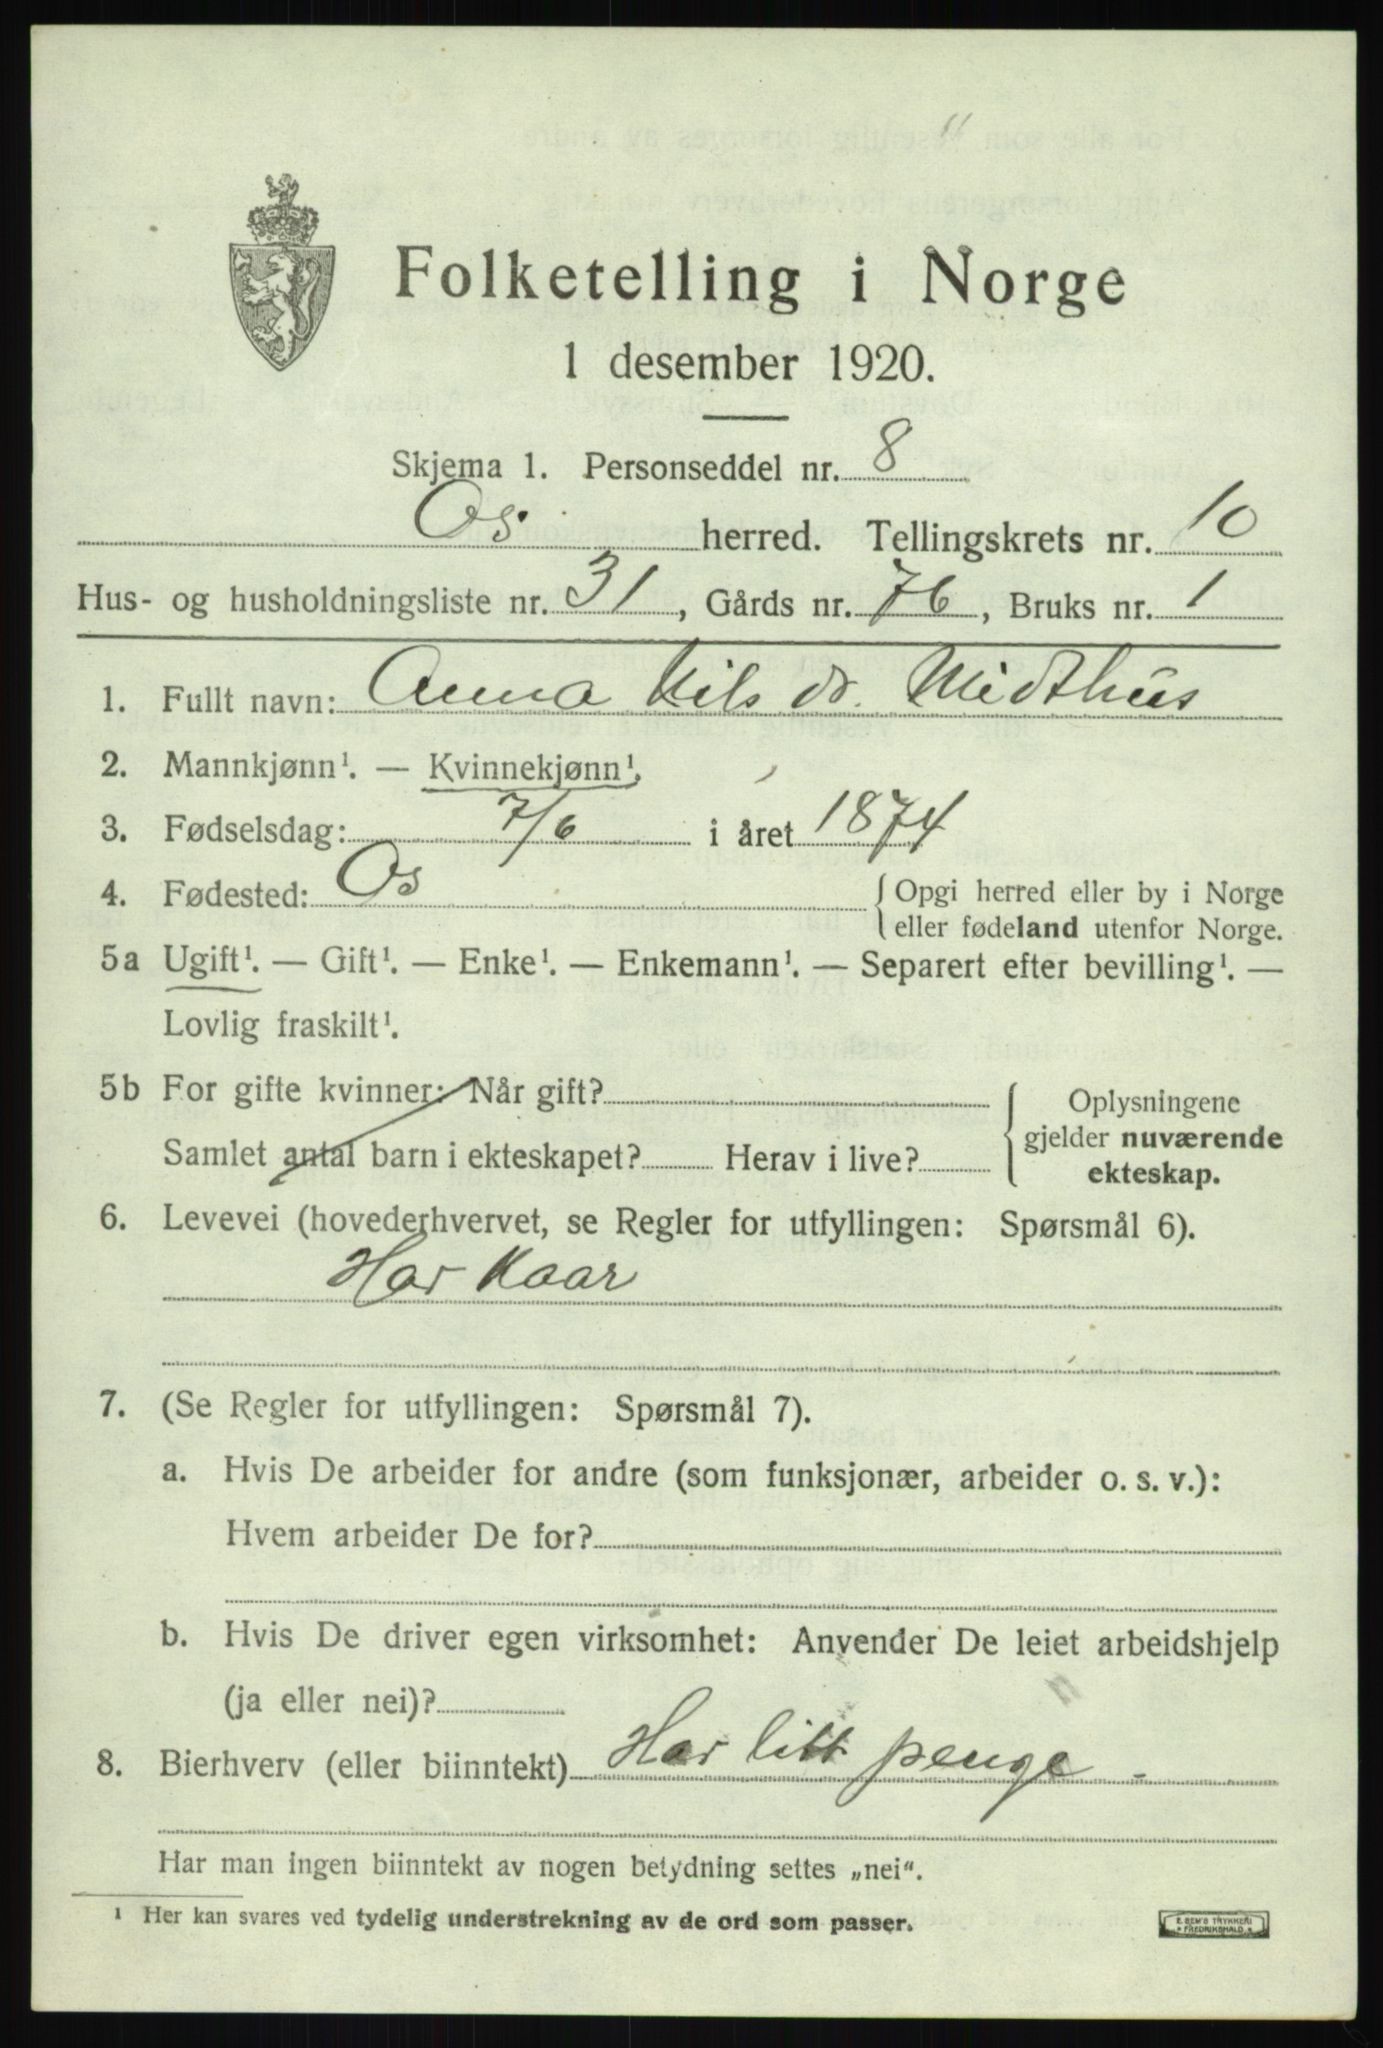 Folketelling i Norge
1 desember 1920.
Skjema 1. Personseddel nr. 8
Os. herred. Tellingskrets nr. 10
Hus- og husholdningsliste nr. 31, Gårds nr. 76, Bruks nr. 1
1. Fullt navn: Anna Nils dr. Midthus
2. Mannkjønn¹. — Kvinnekjønn¹.
3. Fødselsdag: 7/6 i året 1874
4. Fødested: Os { Opgi herred eller by i Norge
eller fødeland utenfor Norge.
5a Ugift¹. — Gift¹. — Enke¹. — Enkemann¹. — Separert efter bevilling¹. —
Lovlig fraskilt¹.
5b For gifte kvinner: Når gift?
Samlet antal barn i ekteskapet? Herav i live?
{ Oplysningene
gjelder nuværende
ekteskap.
6. Levevei (hovederhvervet, se Regler for utfyllingen: Spørsmål 6).
Har Kaar
7. (Se Regler for utfyllingen: Spørsmål 7).
a. Hvis De arbeider for andre (som funksjonær, arbeider o. s. v.):
Hvem arbeider De for?
b. Hvis De driver egen virksomhet: Anvender De leiet arbeidshjelp
(ja eller nei)?
8. Bierhverv (eller biinntekt) Har litt penge -
Har man ingen biinntekt av nogen betydning settes „nei“.
¹ Her kan svares ved tydelig understrekning av de ord som passer.
E. SEM'S TRYKKERI
FREDRIKSHALD